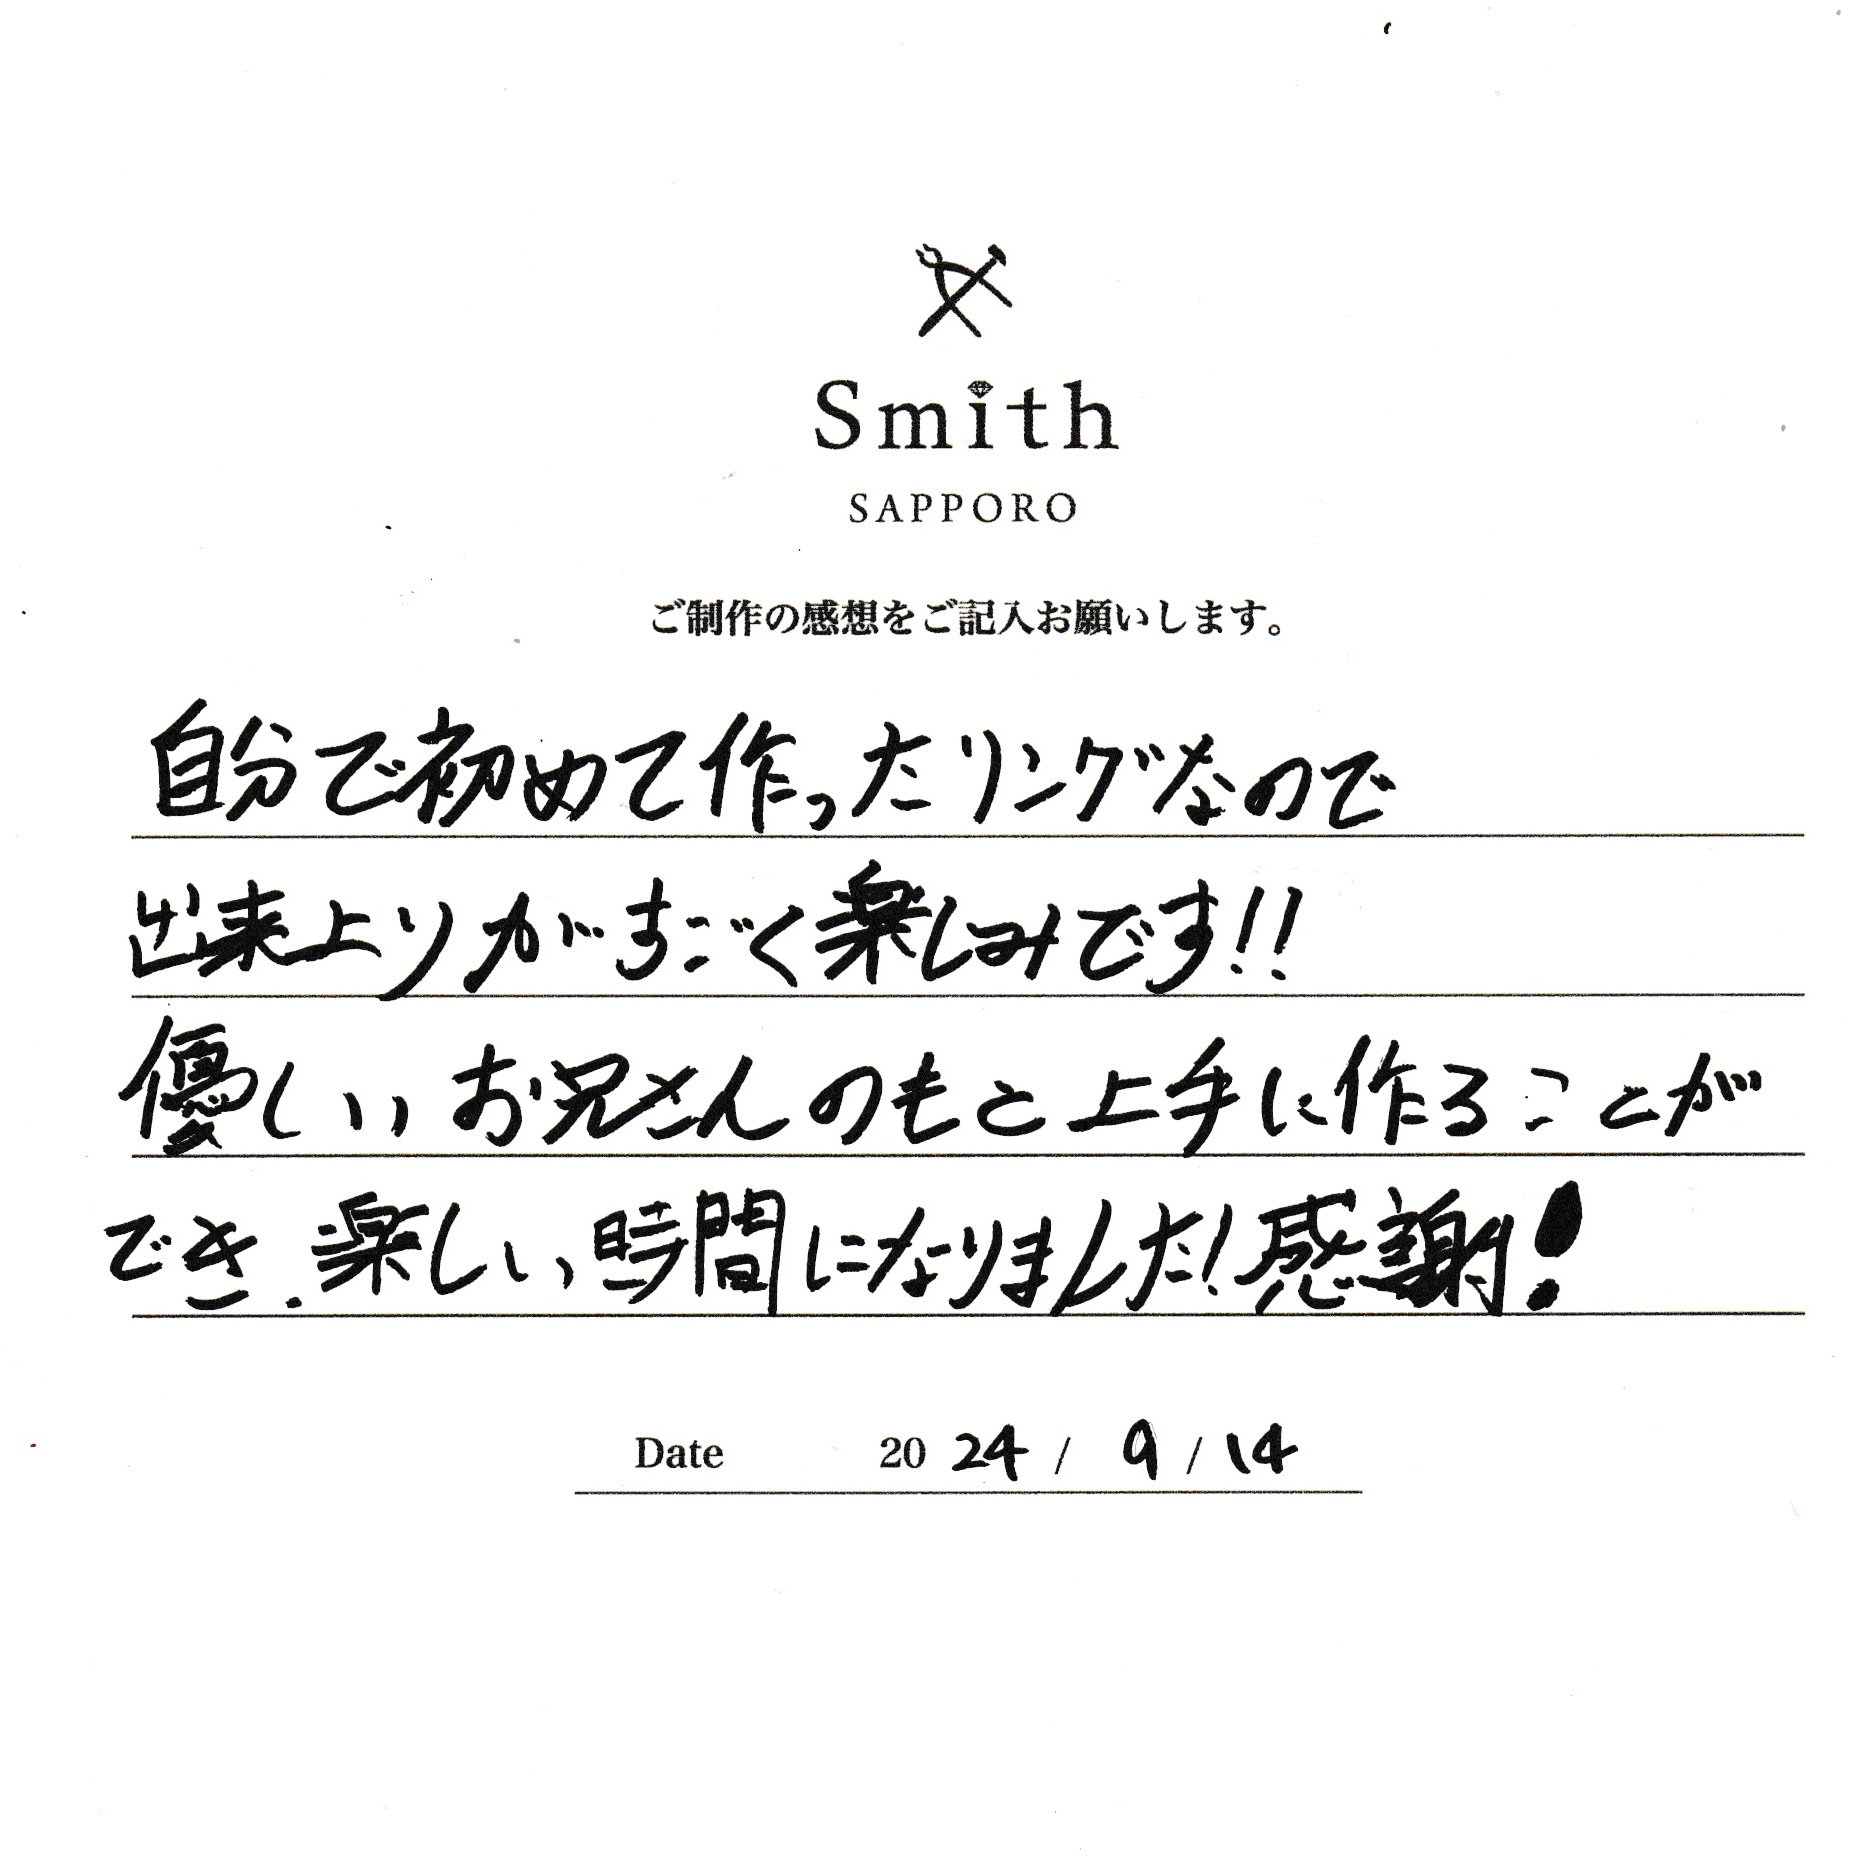 Smith
SAPPORO
ご制作の感想をご記入お願いします。
自分で初めて作ったリングなので
出来上りがすごく楽しみです!!
優しいお兄さんのもと上手に作ることが
でき、楽しい時間になりました!感謝!
Date 2024 / 9 / 14